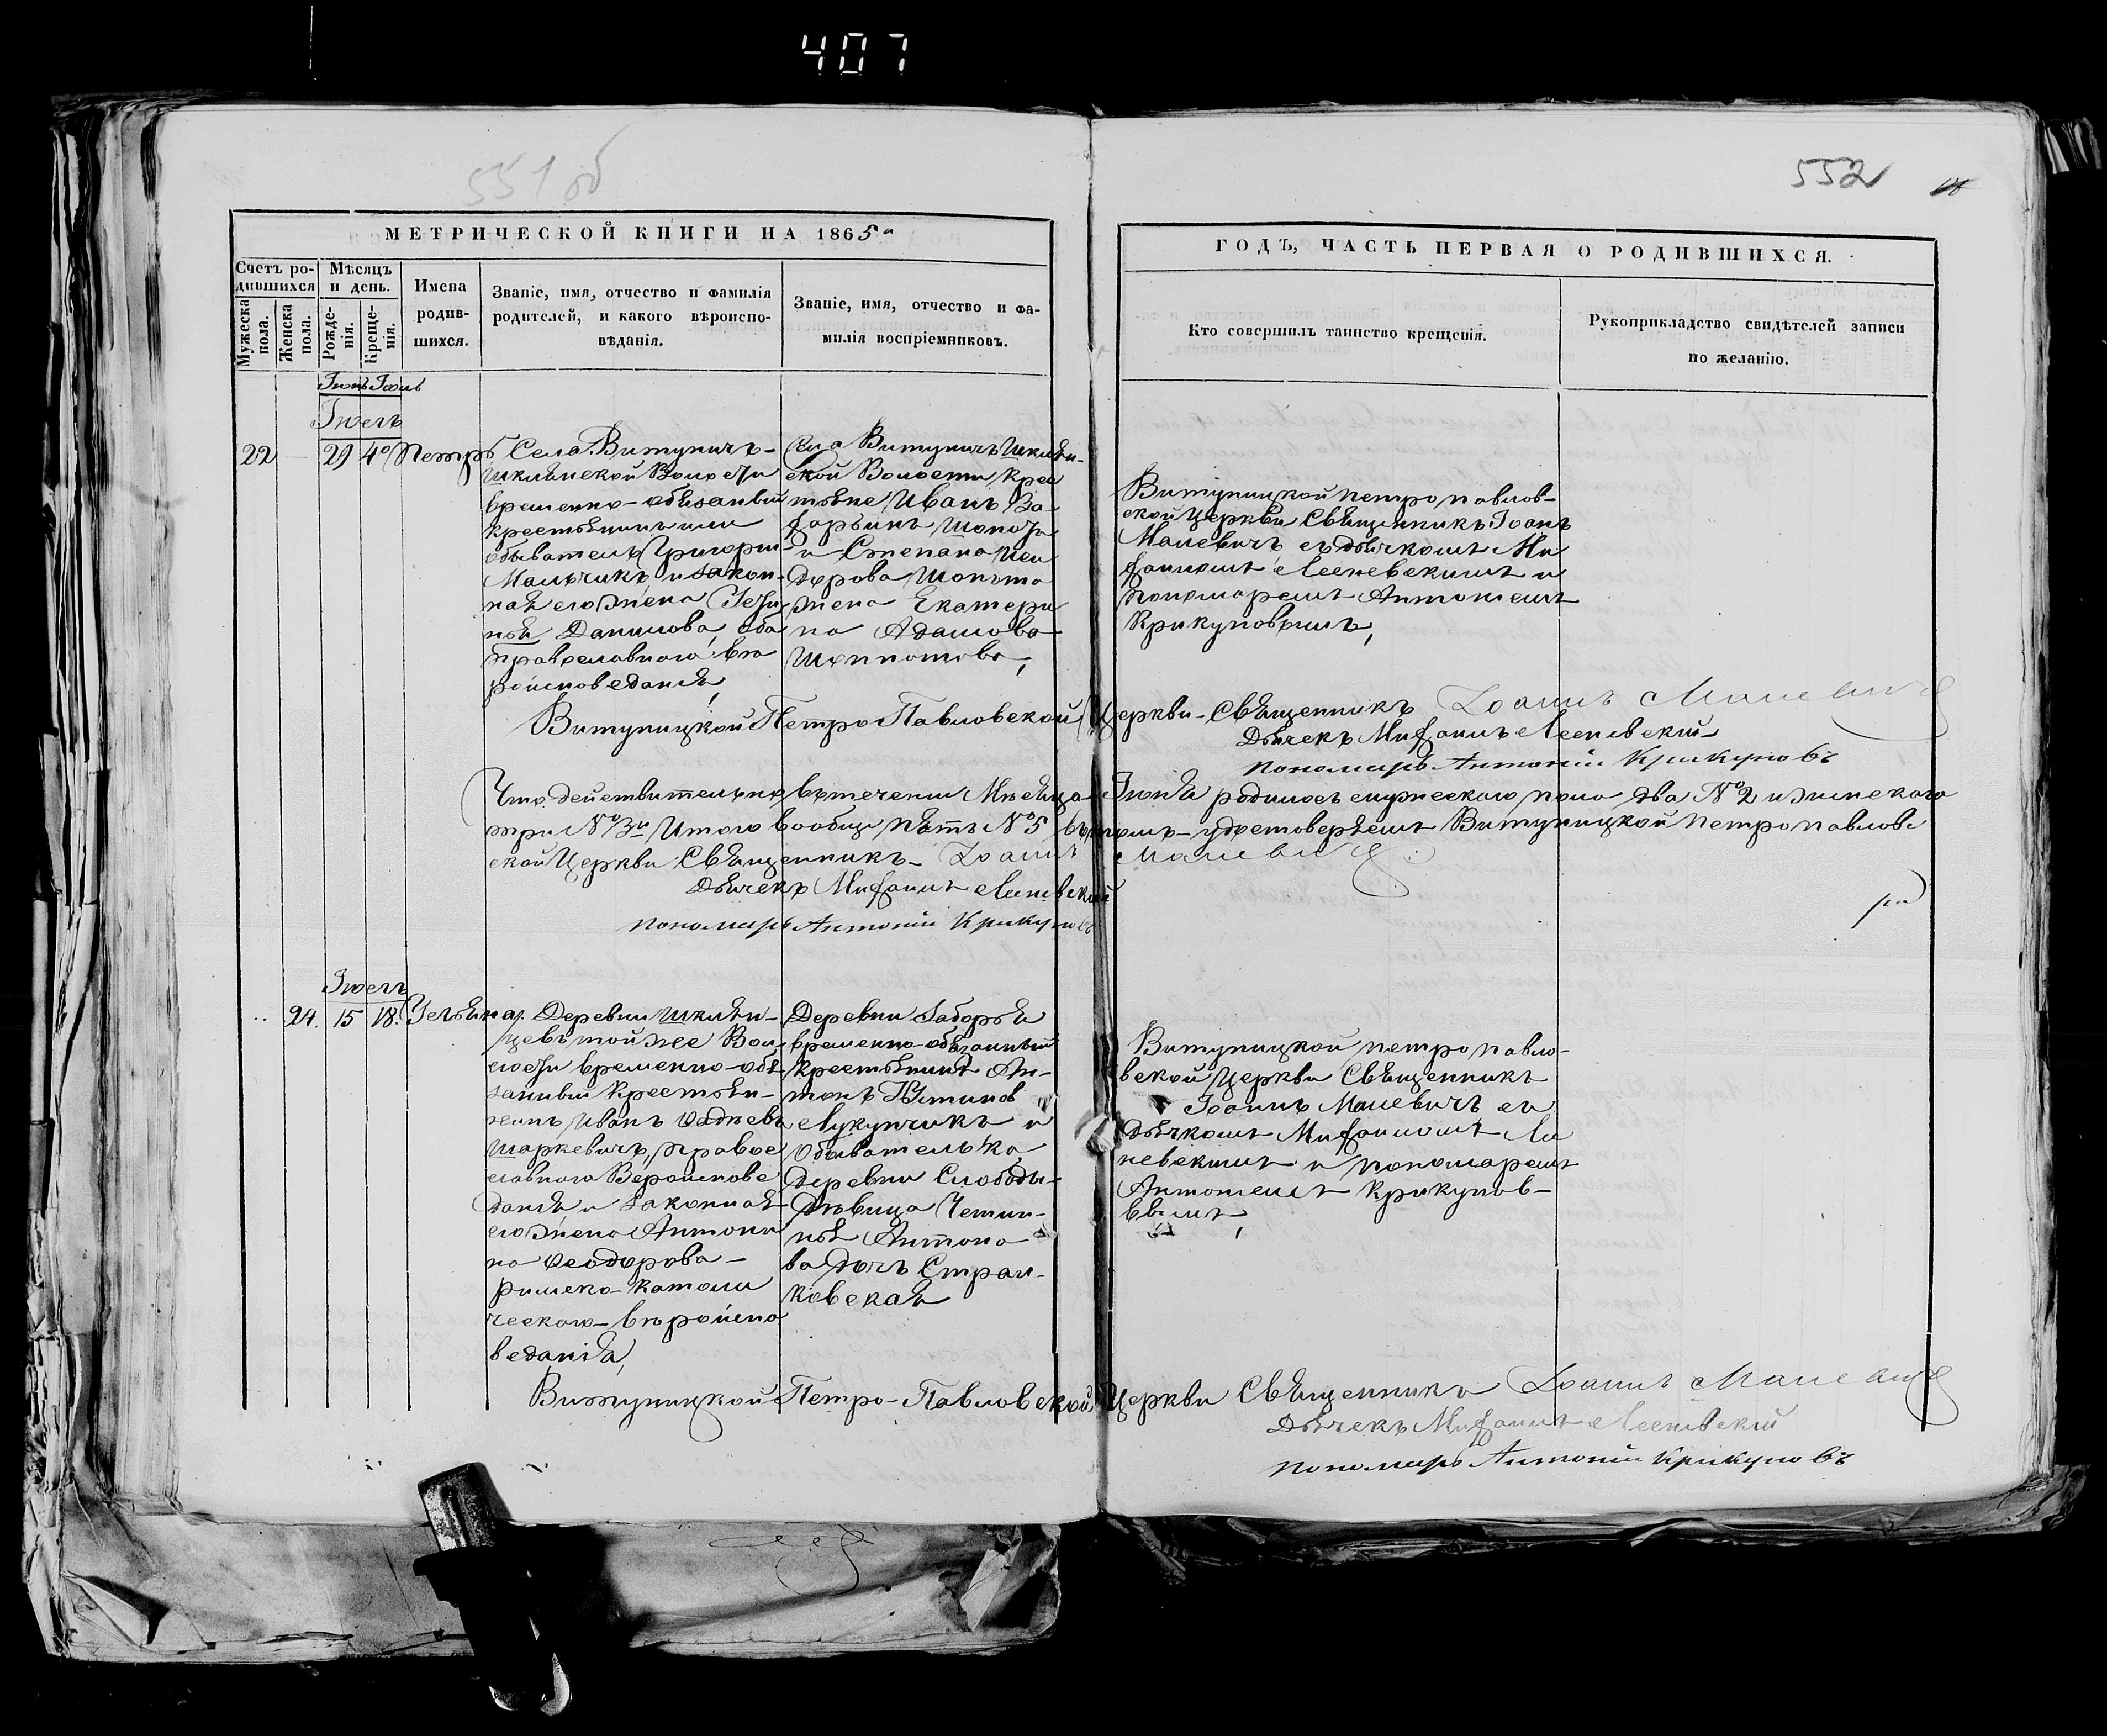 407
551 об
552
МЕТРИЧЕСКОЙ КНИГИ НА 1865
ГОДЪ, ЧАСТЬ ПЕРВАЯ О РОДИВШИХСЯ.
Счетъ ро-
дившихся
Мужеска
пола.
Женска
пола.
Мѣсяцъ
и день.
Рожде-
нія.
Креще-
нія.
Имена
родив-
шихся.
Званіе, имя, отчество и фамилія
родителей, и какого вѣроиспо-
вѣданія.
Званіе, имя, отчество и фа-
милія воспріемниковъ.
Кто совершилъ таинство крещенія.
Рукоприкладство свидѣтелей записи
по желанію.
22
29
4
Петръ
Села Витуничъ-
Волости
временно-обязаный
крестьянинъ или
обыватель Григорий
Мальчикъ и закон-
ная его жена
Данилова, оба
православного вѣ
роисповеданія,
Села Витуничъ
ской Волости крес
тьяне Иванъ За
харьинъ
и Степана
дорова
жена Екатери
на Адамова
Витуницкой петропавлов-
ской церкви Священникъ Іоанъ
Малевичъ съ дьячкомъ Ми
фаиломъ и
пономаремъ Антониемъ
Крикуновымъ,
Витуницкой Петро Павловской Церкви Священникъ Іоаннъ Малевичъ
Дьячекъ
пономарь Антоній Крикуновъ
Что действительно въ течении Мѣсяца Июня родилось мужеского пола два №2 и женского
три №3и Итого вообще пять №5 въ томъ удостоверяемъ Витуницкой петропавлов
ской Церкви Священникъ Іоаннъ Малевичъ
Дьячекъ
пономарь Антоній Крикуновъ
24.
15
18.
Ульяна,
Деревни
цевъ той же Вол
ости временно-обя
заный Крестьян
инъ Иванъ
Шаркевичъ, право
славного Вероиспове
данія и законная
его жена Антони
на Феодорова
римско-католи
ческого вѣроиспо
веданія,
Деревни Заборья
временно обязанный
крестьянинъ Ан-
тонъ Устинов
Лукунчикъ и
Обывателька
деревни Слободы
Дѣвица
Антоно
ва дочь
ковская
Витуницкой петропавло-
вской церкви Священникъ
Іоаннъ Малевичъ съ
дьячкомъ
и пономаремъ
Антониемъ Крикунов-
вымъ,
Витуницкой Петро-Павловской Церкви Священникъ Іоаннъ Малевичъ
Дьячекъ
пономарь Антоній Крикуновъ